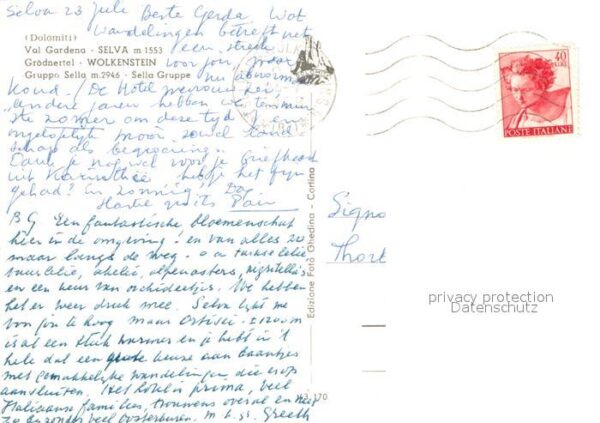 Selva 23 Juli Beste Gerda. Wat
wandelingen betreft net
(Dolomiti)
een streek
Val Gardena - SELVA m 1553
Grödnertel - WOLKENSTEIN
voor jou, maar
Gruppo Sella m.2946 - Sella Gruppe
nu abnormaal
koud. (De Hotel
andere jaren hebben we tenminste
zomer om deze tijd) en
ongelooflijk mooi, zowel land
schap als begroeiing.
Dank je nog wel voor je briefkaart
uit Karinthië heb je het fijn
gehad? en zonnig?
Hartel. groets
B G Een fantastische bloemenschat
hier in de omgeving! en van alles zo
maar langs de weg. o a turkse lelie
vuurlelie, akelei, alpenasters, nigritella's
en een keur van orchideetjes. We hebben
het er weer druk mee. Selva lijkt me
voor jou te hoog maar Ortisei
is al een stuk warmer en je hebt in 't
hele dal een grote keuze aan baantjes
met gemakkelijke wandelingen die erop
aansluiten. Het hotel is prima, veel
Italiaanse families, trouwens overal en niet
zo bijzonder veel Oosterburen. m. l. gr. Greeth
Edizione Foto Ghedina - Cortina
43.170
40
POSTE ITALIANE
Signo
Thort
privacy protection
Datenschutz